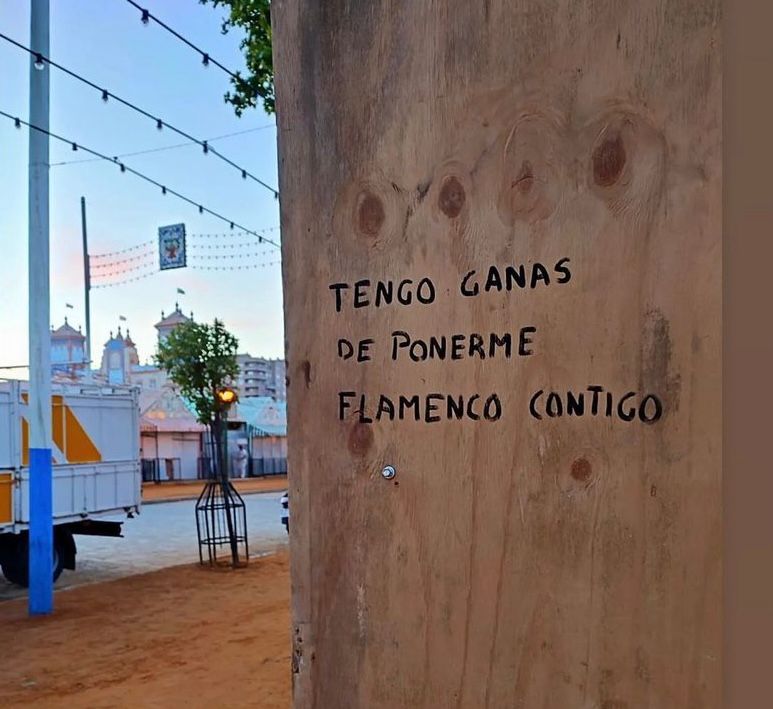 TENGO GANAS
DE PONERME
FLAMENCO CONTIGO